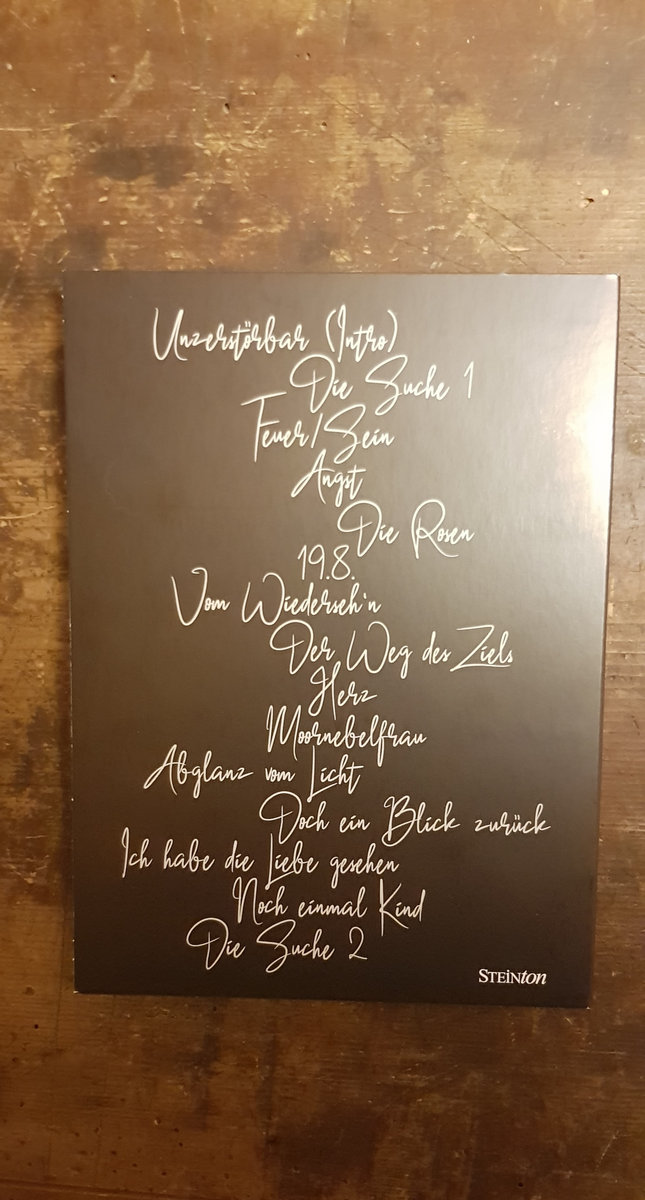 Unzerstörbar (Intro)
Die Suche 1
Feuer/Sein
Angst
Die Rosen
19.8.
Vom Wiederseh'n
Der Weg des Ziels
Herz
Moornebelfrau
Abglanz vom Licht
Doch ein Blick zurück
Ich habe die Liebe gesehen
Noch einmal Kind
Die Suche 2
STEiNton